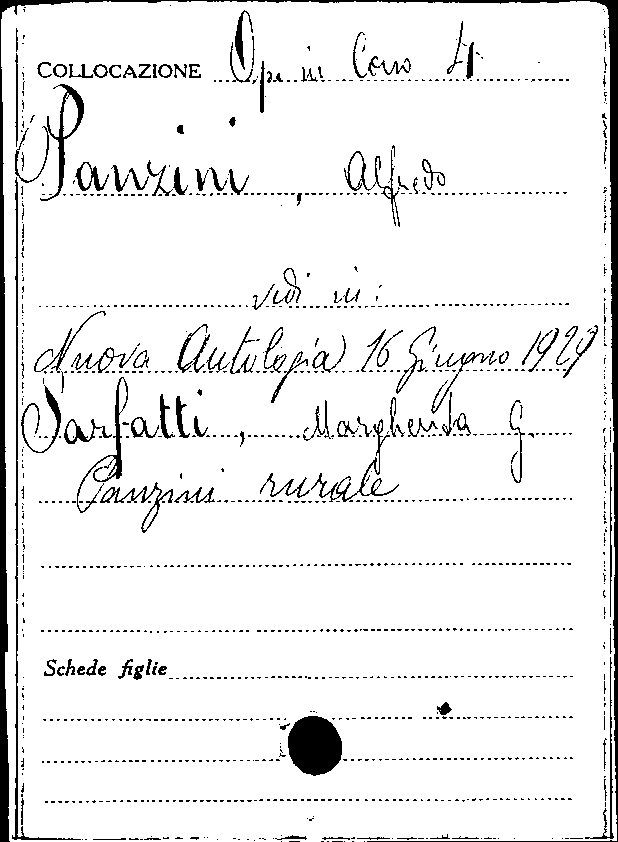 COLLOCAZIONE Op. in Corso 4
Panzini, Alfredo
vedi in:
Nuova Antologia 16 Giugno 1929
Sarfatti, Margherita G.
Panzini rurale
Schede figlie